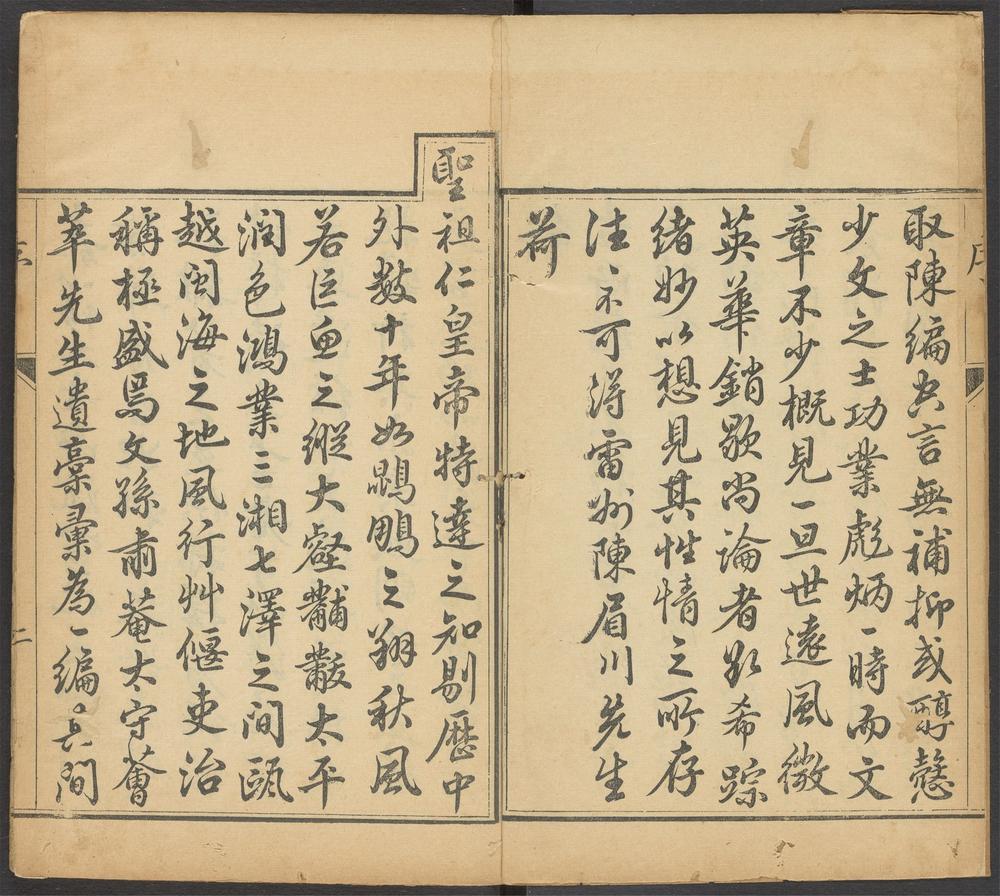 序
取陳編空言無補抑或顓愨
少文之士功業彪炳一時而文
章不少概見一旦世遠風微
英華銷歇尚論者欲希踪
緒妙以想見其性情之所存
往〻不可得雷州陳眉川先生
荷
聖祖仁皇帝特達之知剔歷中
外數十年如鵾鵬之翔秋風
若巨魚之縱大壑黼黻太平
潤色鴻業三湘七澤之間甌
越閩海之地風行艸偃吏治
稱極盛焉文孫肅菴太守薈
萃先生遺稾彙為一編其間
二